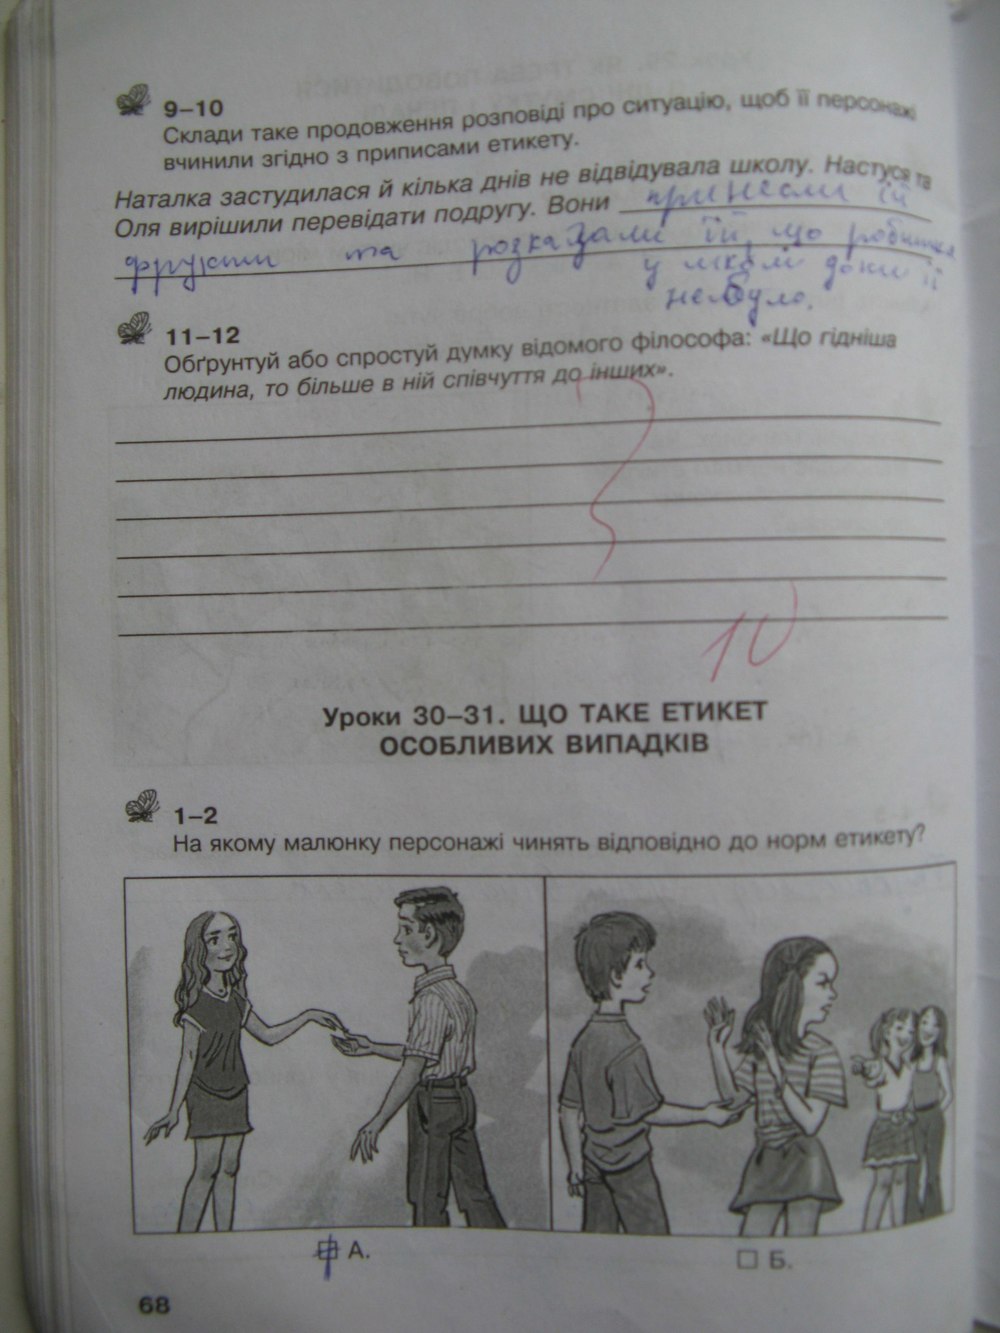 9–10
Склади таке продовження розповіді про ситуацію, щоб її персонажі
вчинили згідно з приписами етикету.
Наталка застудилася й кілька днів не відвідувала школу. Настуся та
Оля вирішили перевідати подругу. Вони принесли їй
фрукти та розказали їй, що робиться
у школі доки її
не було.
11–12
Обґрунтуй або спростуй думку відомого філософа: «Що гідніша
людина, то більше в ній співчуття до інших».
10
Уроки 30–31. ЩО ТАКЕ ЕТИКЕТ
ОСОБЛИВИХ ВИПАДКІВ
1–2
На якому малюнку персонажі чинять відповідно до норм етикету?
А.
Б.
68